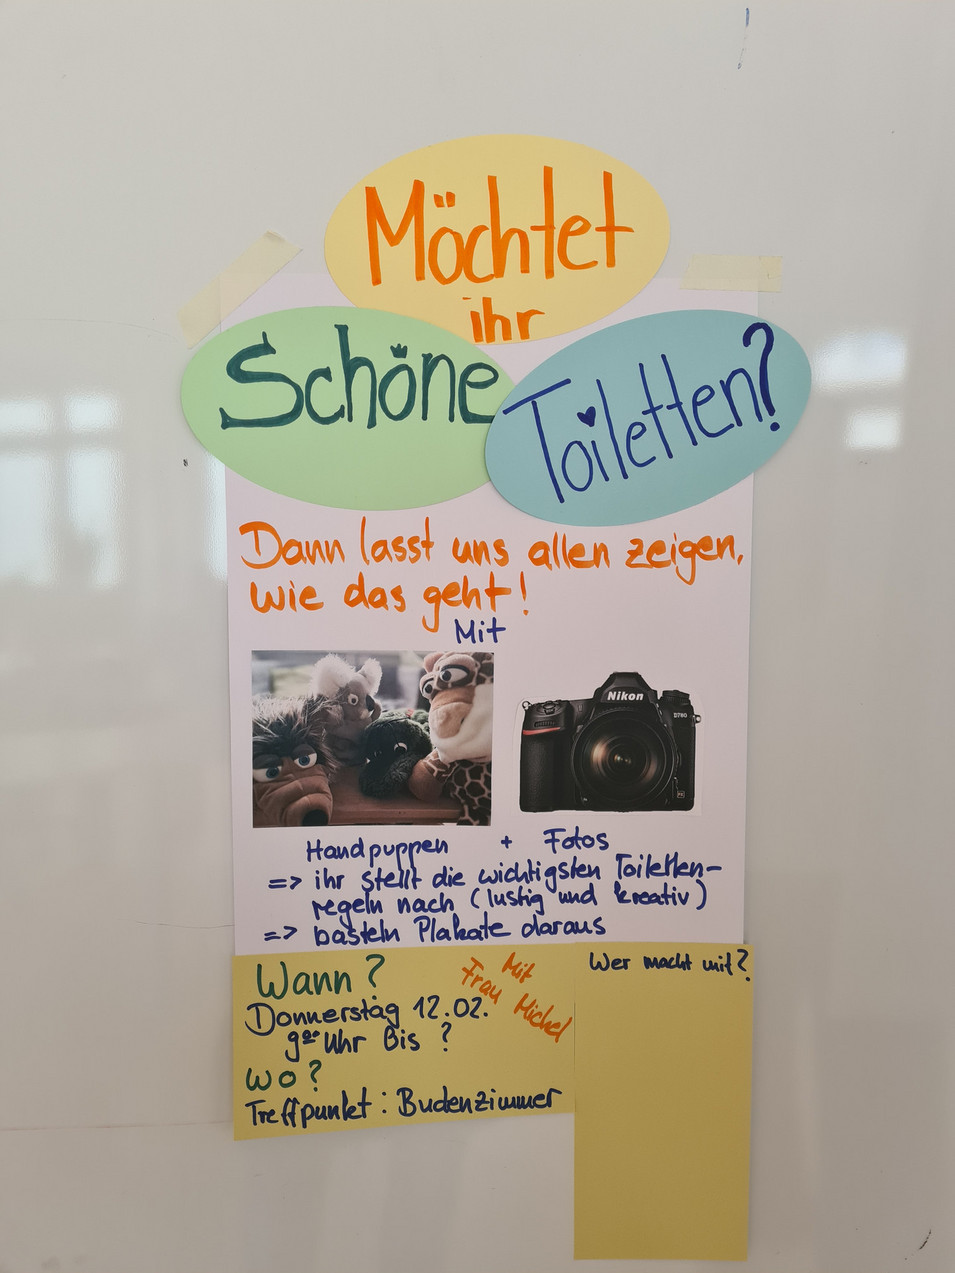 Möchtet
ihr
Schöne
Toiletten?
Dann lasst uns allen zeigen,
wie das geht!
Mit
Nikon
D780
Handpuppen + Fotos
=> ihr stellt die wichtigsten Toiletten-
regeln nach (lustig und kreativ)
=> basteln Plakate daraus
Wann?
Mit
Frau Michel
Donnerstag 12.02.
9⁰⁰ Uhr Bis ?
Wo?
Treffpunkt: Budenzimmer
Wer macht mit?